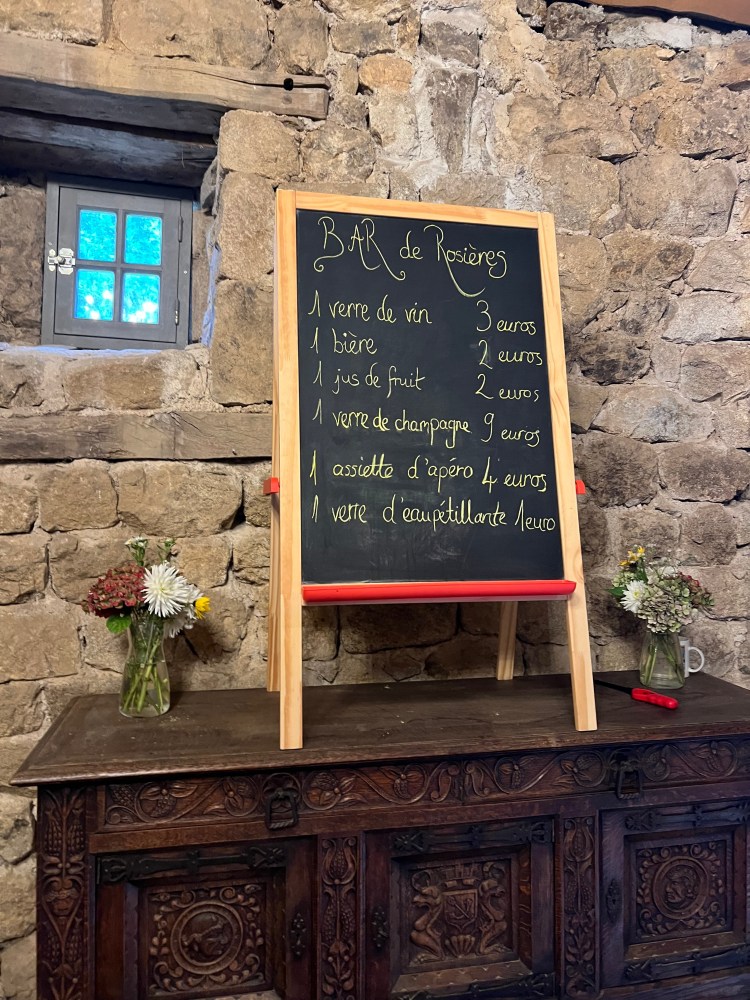 BAR de Rosières
1 verre de vin 3 euros
1 bière 2 euros
1 jus de fruit 2 euros
1 verre de champagne 9 euros
1 assiette d'apéro 4 euros
1 verre d'eau pétillante 1 euro